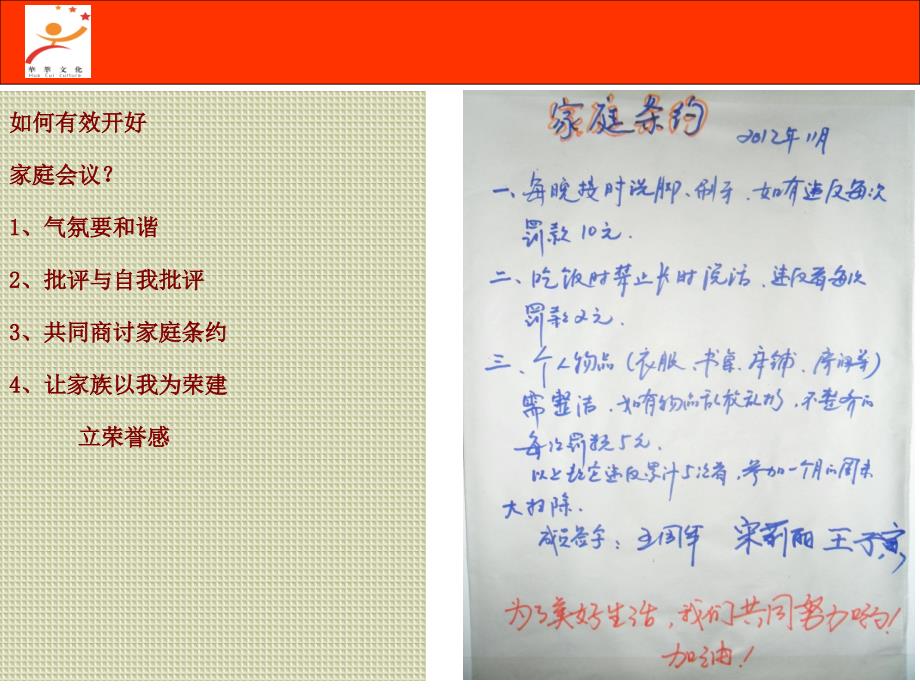 华萃文化
Hua Cui Culture
如何有效开好
家庭会议？
1、气氛要和谐
2、批评与自我批评
3、共同商讨家庭条约
4、让家族以我为荣建
立荣誉感
家庭条约
2012年11月
一、每晚按时洗脚、刷牙，如有违反每次
罚款10元.
二、吃饭时禁止长时说话、违反者每次
罚款2元.
三、个人物品（衣服、书桌、床铺、房间等）
需整洁，如有物品乱放乱扔，不整齐的
每次罚款5元.
以上规定违反累计5次者，参加一个月的周末
大扫除.
成员签字：王国军 宋莉丽 王子寅
为了美好生活，我们共同努力哟！
加油！